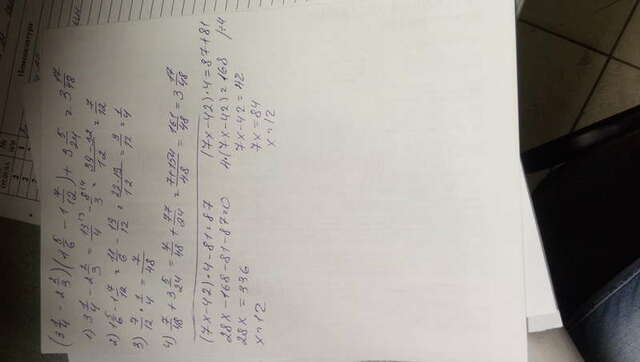 (3 1/4 - 2 2/3)(1 5/6 - 1 7/12) + 3 5/24 = 3 17/48
1) 3 1/4 - 2 2/3 = 13/4 \3 - 8/3 \4 = 39-32/12 = 7/12
2) 1 5/6 - 1 7/12 = 11/6 - 19/12 = 22-19/12 = 3/12 = 1/4
3) 7/12 · 1/4 = 7/48
4) 7/48 + 3 5/24 = 7/48 + 77/24 = 7+154/48 = 161/48 = 3 17/48
(7x-42)·4-81=87
28x-168-81-87=0
28x = 336
x=12
(7x-42)·4=87+81
4·(7x-42)=168 |:4
7x-42=42
7x=84
x=12
Номенклатура
ОТДЕЛА